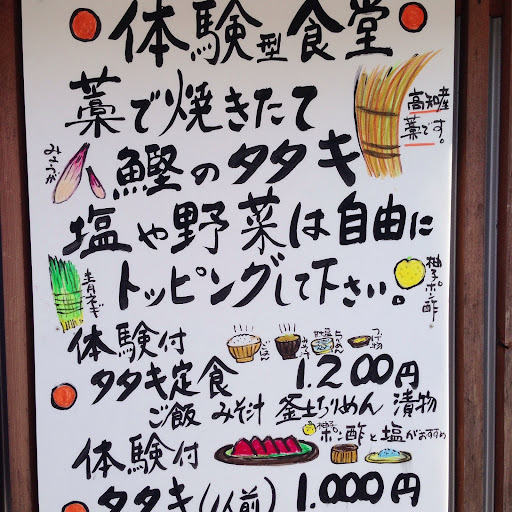 体験型食堂
藁で焼きたて
高知産
藁です。
みょうが
鰹のタタキ
塩や野菜は自由に
トッピングして下さい。
青ネギ
柚子ポン酢
体験付
ごはん
みそ汁
つけ物
タタキ定食 1.200円
ご飯 みそ汁 釜土ちりめん 漬物
体験付
柚子ポン酢と塩がおすすめ
タタキ(1人前) 1.000円